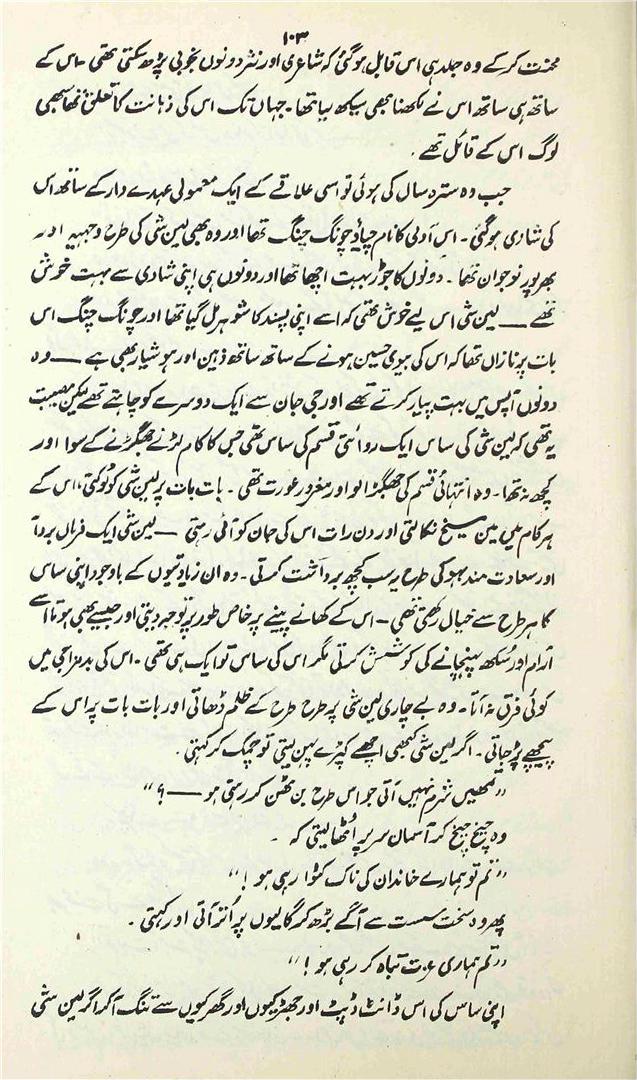 ۱۰۳
محنت کر کے وہ جلد ہی اس قابل ہو گئی کہ شاعری اور نثر دونوں بخوبی پڑھ سکتی تھی ۔ اس کے
ساتھ ہی ساتھ اس نے لکھنا بھی سیکھ لیا تھا ۔ جہاں تک اس کی ذہانت کا تعلق تھا سبھی
لوگ اس کے قائل تھے ۔
جب وہ سترہ سال کی ہوئی تو اسی علاقے کے ایک معمولی عہدے دار کے ساتھ اس
کی شادی ہو گئی ۔ اس آدمی کا نام چیاؤ چونگ چنگ تھا اور وہ بھی لین شی کی طرح وجیہہ اور
بھرپور نوجوان تھا ۔ دونوں کا جوڑ بہت اچھا تھا اور دونوں ہی اپنی شادی سے بہت خوش
تھے ـــــ لین شی اس لیے خوش تھی کہ اسے اپنی پسند کا شوہر مل گیا تھا اور چونگ چنگ اس
بات پر نازاں تھا کہ اس کی بیوی حسین ہونے کے ساتھ ساتھ ذہین اور ہوشیار بھی ہے ـــــ وہ
دونوں آپس میں بہت پیار کرتے تھے اور جی جان سے ایک دوسرے کو چاہتے تھے لیکن مصیبت
یہ تھی کہ لین شی کی ساس ایک روائتی قسم کی ساس تھی جس کا کام لڑنے جھگڑنے کے سوا اور
کچھ نہ تھا ۔ وہ انتہائی قسم کی جھگڑالو اور مغرور عورت تھی ۔ بات بات پر لین شی کو ٹوکتی ، اس کے
ہر کام میں مین میخ نکالتی اور دن رات اس کی جان کو آئی رہتی ـــــ لین شی ایک فرماں بردار
اور سعادت مند بہو کی طرح یہ سب کچھ برداشت کرتی ۔ وہ ان زیادتیوں کے باوجود اپنی ساس
کا ہر طرح سے خیال رکھتی تھی ۔ اس کے کھانے پینے پر خاص طور پر توجہ دیتی اور جیسے بھی ہوتا اسے
آرام اور سُکھ پہنچانے کی کوشش کرتی مگر اس کی ساس تو ایک ہی تھی ۔ اس کی بدمزاجی میں
کوئی فرق نہ آتا ۔ وہ بے چاری لین شی پر طرح طرح کے ظلم ڈھاتی اور بات بات پر اس کے
پیچھے پڑ جاتی ۔ اگر لین شی کبھی اچھے کپڑے پہن لیتی تو چمک کر کہتی ۔
”تمھیں شرم نہیں آتی جو اس طرح بن ٹھن کر رہتی ہو ـــــ ؟“
وہ چیخ چیخ کر آسمان سر پر اُٹھا لیتی کہ ۔
”تم تو ہمارے خاندان کی ناک کٹوا رہی ہو !“
پھر وہ سخت سست سے آگے بڑھ کر گالیوں پر اُتر آتی اور کہتی ۔
”تم ہماری عزت تباہ کر رہی ہو !“
اپنی ساس کی اس ڈانٹ ڈپٹ اور جھڑکیوں اور گھرکیوں سے تنگ آ کر اگر لین شی